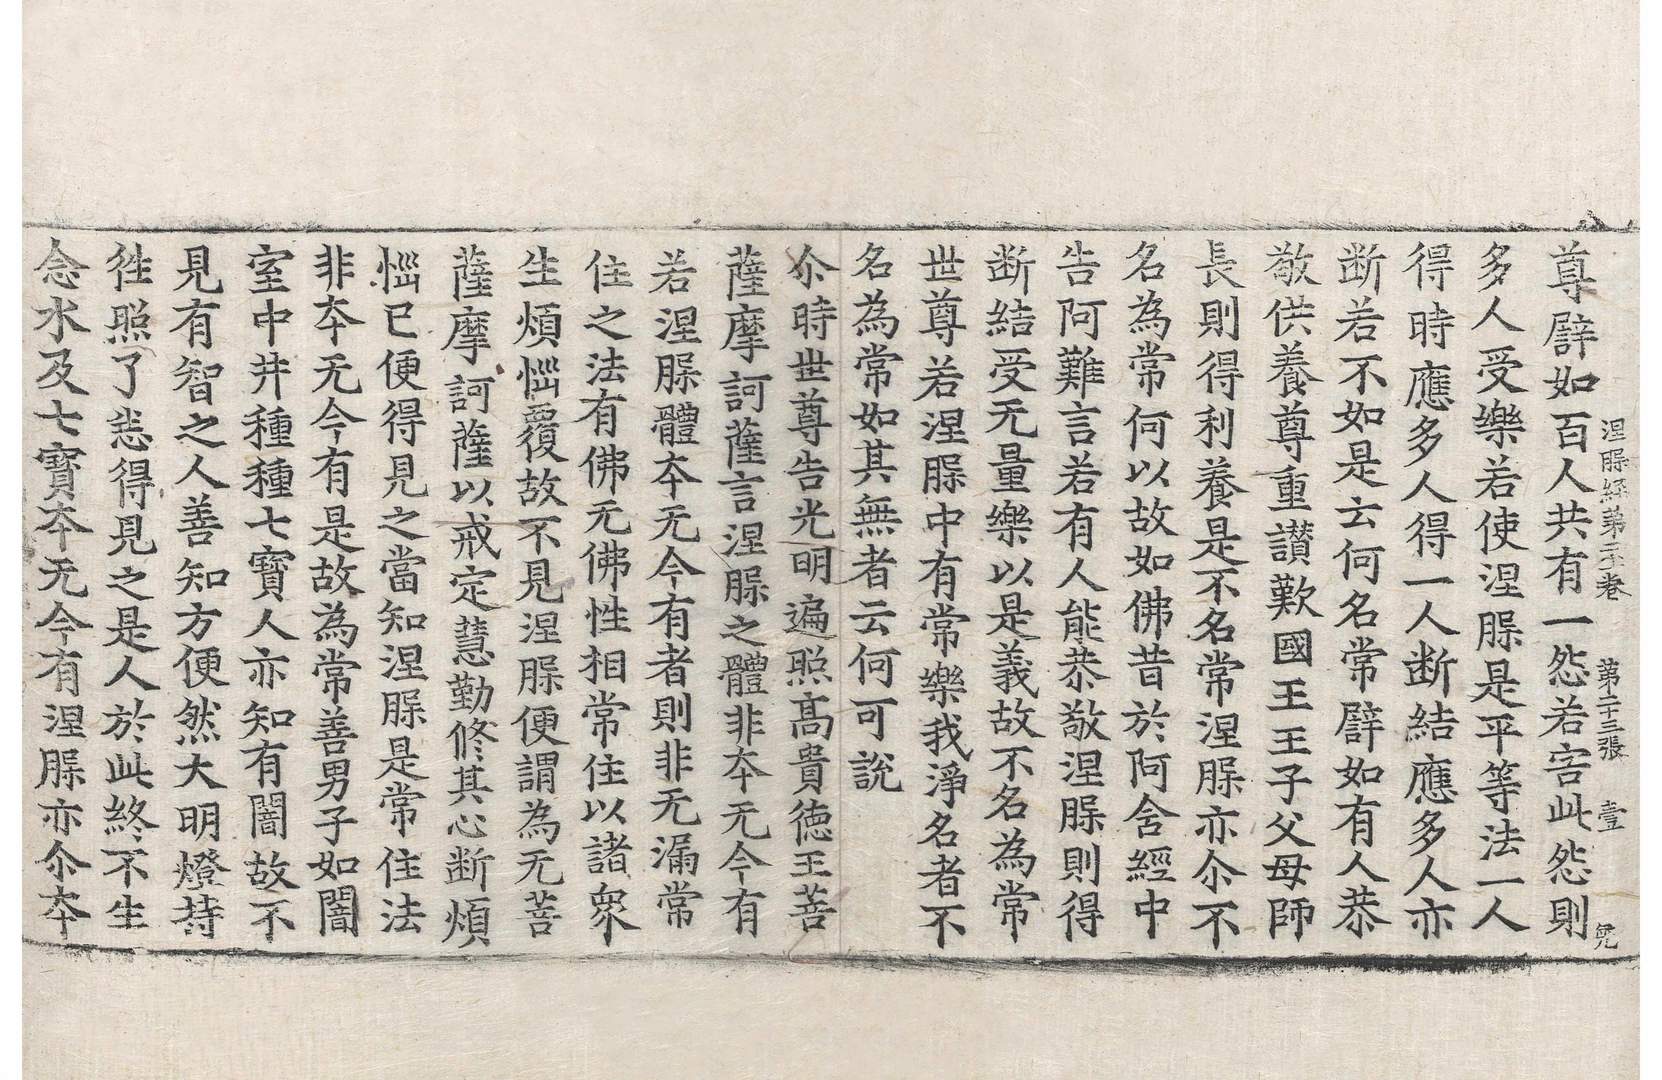 涅槃經第二十卷　第二十三張　壹
尊譬如百人共有一怨若害此怨則
多人受樂若使涅槃是平等法一人
得時應多人得一人断結應多人亦
断若不如是云何名常譬如有人恭
敬供養尊重讃歎國王王子父母師
長則得利養是不名常涅槃亦尒不
名為常何以故如佛昔於阿含經中
告阿難言若有人能恭敬涅槃則得
断結受无量樂以是義故不名為常
世尊若涅槃中有常樂我淨名者不
名為常如其無者云何可說
尒時世尊告光明遍照髙貴徳王菩
薩摩訶薩言涅槃之體非夲无今有
若涅槃體夲无今有者則非无漏常
住之法有佛无佛性相常住以諸衆
生煩惱覆故不見涅槃便謂為无菩
薩摩訶薩以戒定慧勤修其心断煩
惱已便得見之當知涅槃是常住法
非夲无今有是故為常善男子如闇
室中井種種七寶人亦知有闇故不
見有智之人善知方便然大明燈持
徃照了悉得見之是人於此終不生
念水及七寶夲无今有涅槃亦尒夲